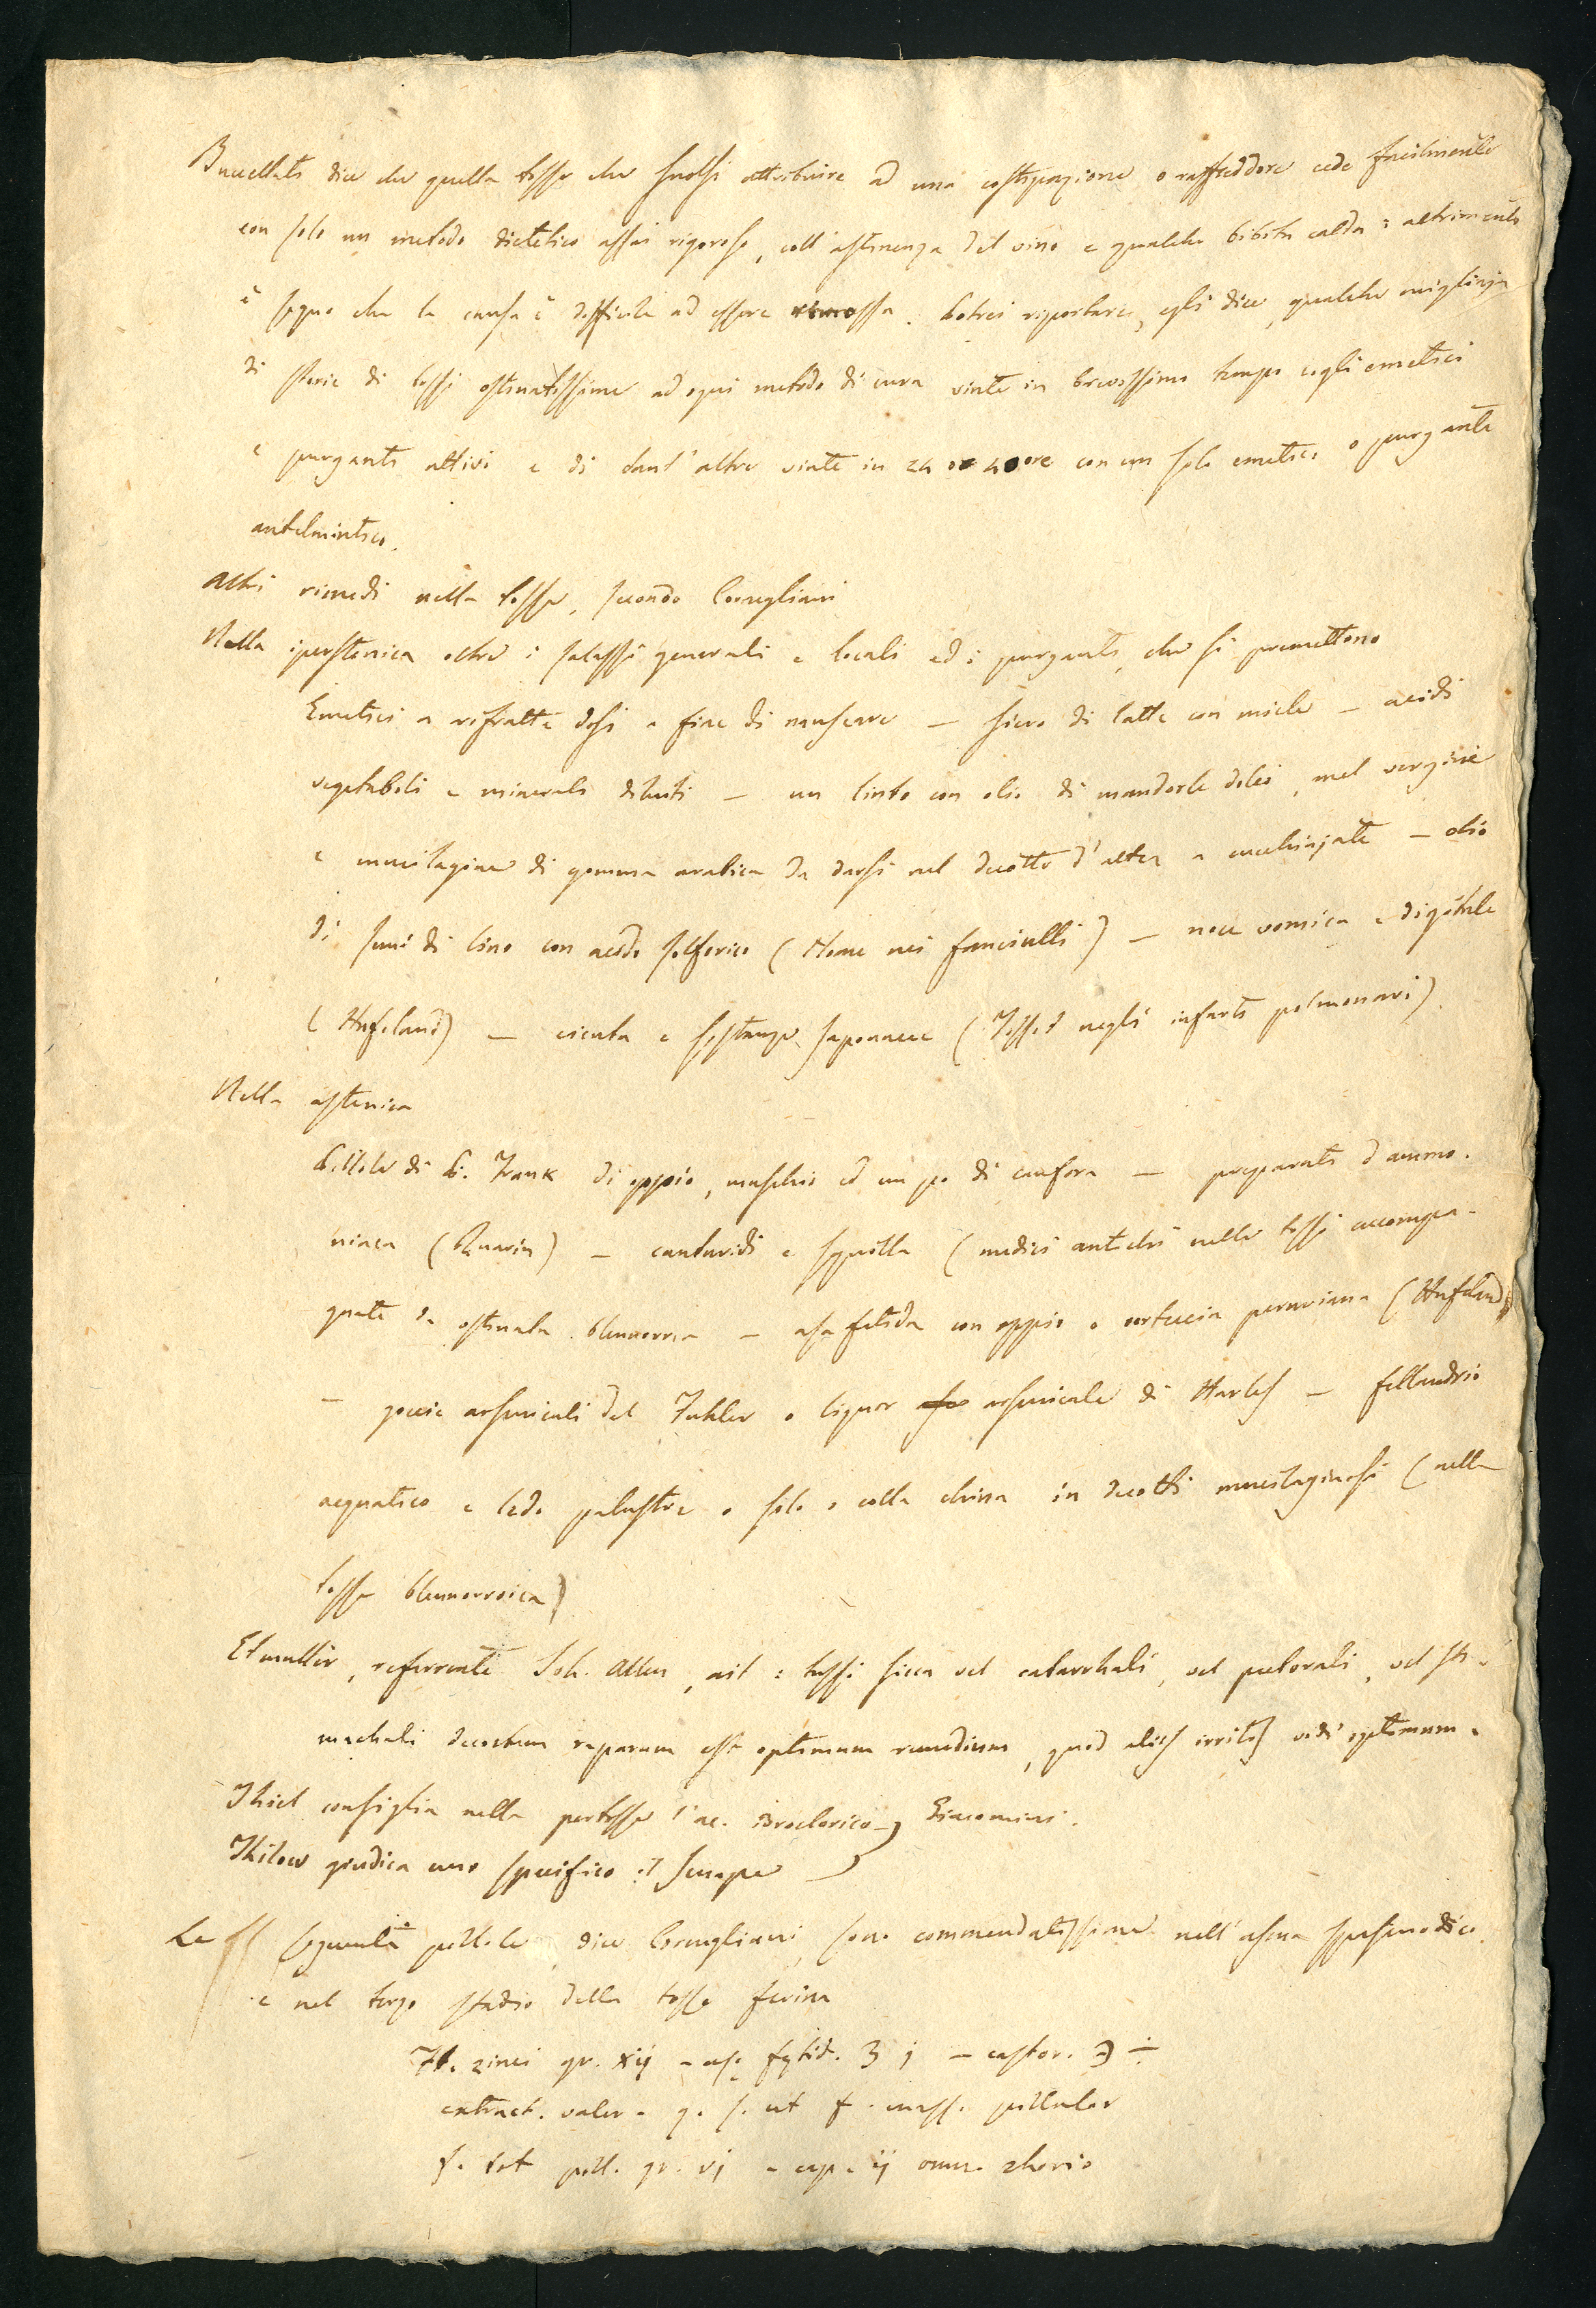 Bucellati dice che quella tosse che suolsi attribuire ad una costipazione o raffreddore cede facilmente
con solo un metodo dietetico assai rigoroso, coll'astinenza del vino e qualche bibita calda: altrimenti
è segno che la causa è difficile ad essere rimossa. Potrei riportare, egli dice, qualche migliaja
di storie di tossi ostinatissime ad ogni metodo di cura vinte in brevissimo tempo cogli emetici
e purganti attivi e di tant'altre vinte in 24 o 4 ore con un solo emetico o purgante
antelmintico.
Altri rimedi nella tosse, secondo Corneliani
Nella iperstenica oltre i salassi generali e locali ed i purganti, che si premettono
Emetici a rifratte dosi a fine di nauseare — siero di latte con miele — acidi
vegetabili e minerali diluti — un linto con olio di mandorle dolci, mel vergine
e mucilagine di gomma arabica da darsi nel decotto d'altea a cucchiajate — olio
di semi di lino con acido solforico (Home nei fanciulli) — noce vomica e digitale
(Hufeland) — cicuta e sostanze saponacee (negli infarti polmonari).
Nella astenica
Pillole di P. Frank di oppio, muschio ed un po di canfora — preparati d'ammo-
niaca (Quarin) — cantaridi e squilla (medici antichi nelle tossi accompa-
gnate da ostinata blennorrea — asa fetida con oppio o corteccia peruviana (Hufeland)
— goccie arsenicali del Fuhler o liquor arsenicale di Harles — fellandrio
acquatico e ledo palustre o solo o colla china in decotti mucilaginosi (nella
tosse blennorroica)
Etmuller, referente Joh. Allen, ait: tussi sicca vel catarrhali, vel pectorali, vel sto-
machali decoctum raparum est optimum remedium, quod aliis irritis vidi optimum.
Thiel consiglia nella pertosse l'ac. idroclorico —) Giacomini.
Thilow giudica uno specifico il senape —)
Le seguenti pillole, dice Corneliani, sono commendatissime nell'asma spasmodico
e nel terzo stadio della tosse ferina
Fl. zinci gr. xij — asę fętid. ʒ j — castor. ℈ ÷
extract. valer. q. s. ut f. mass. pillular
f. tot pill. gr. vj — cap. ij omn. 2horio